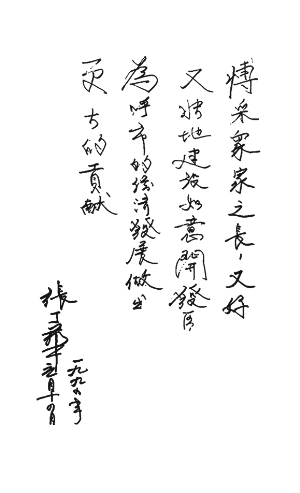 博采众家之長,又好
又快地建设如意開發區
為呼市的经济發展做出
更大的貢献
張
一九九六年
五月十四日